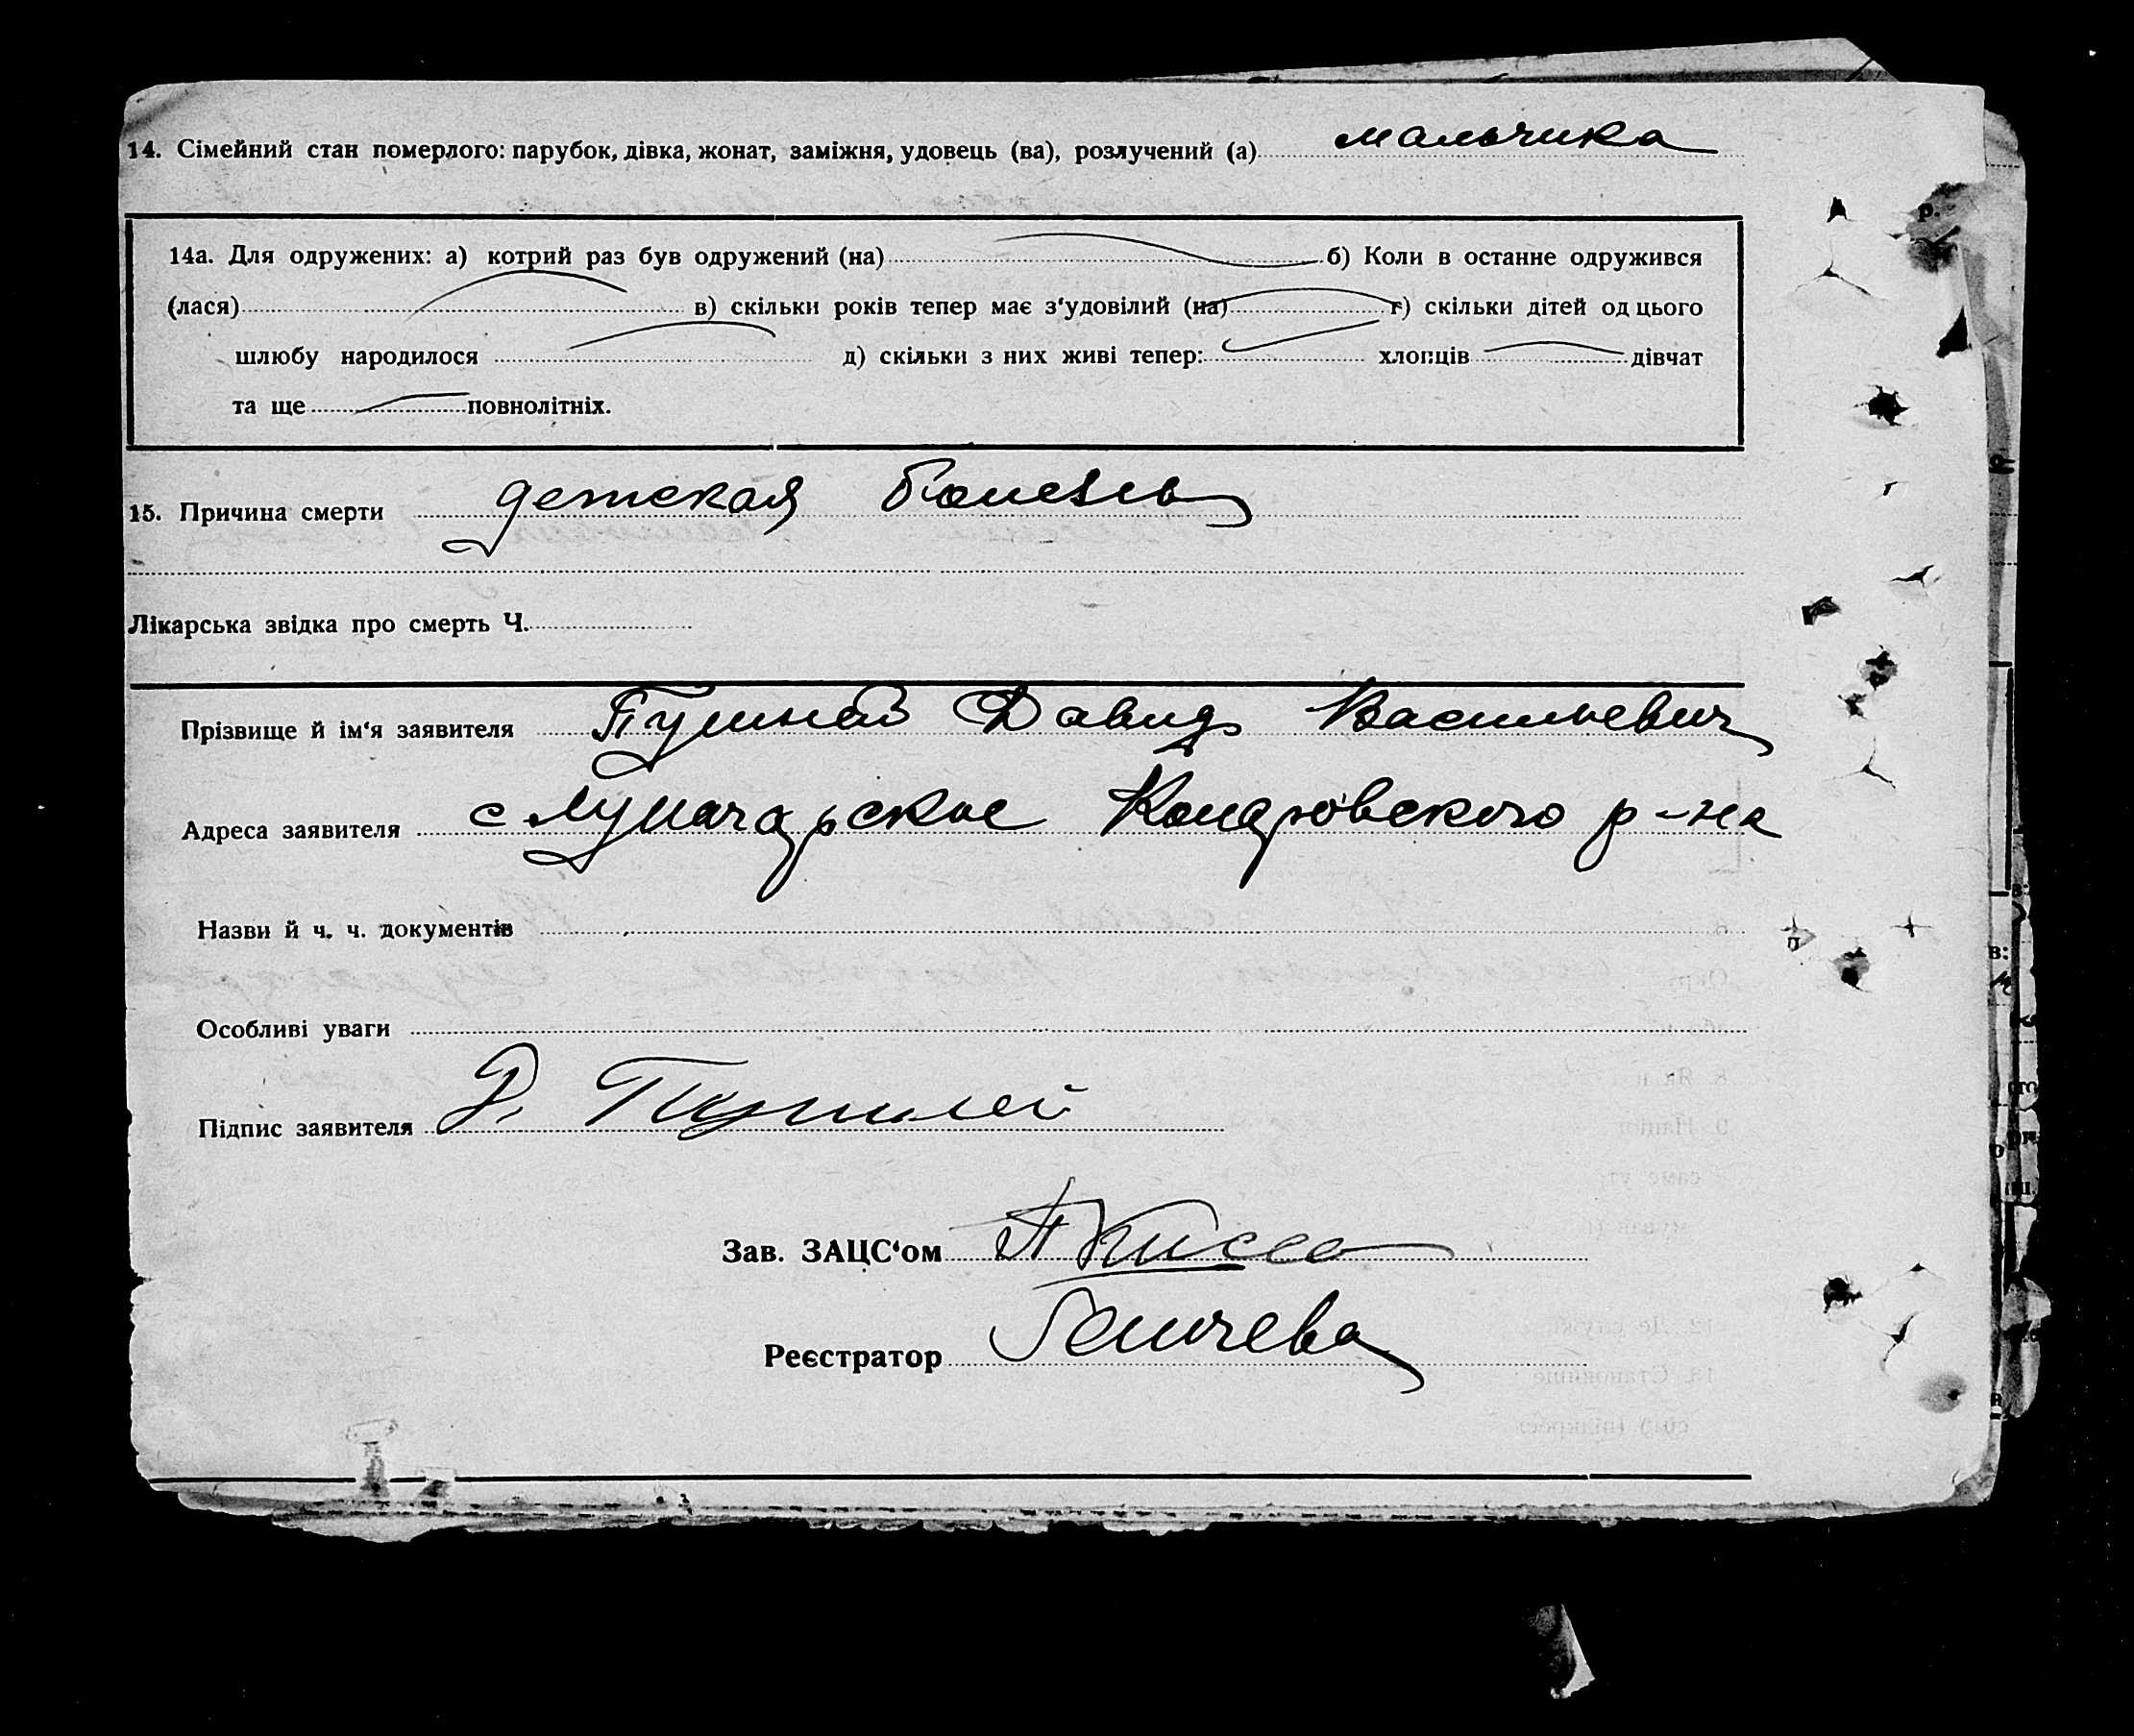 14. Сімейний стан померлого: парубок, дівка, жонат, заміжня, удовець (ва), розлучений (а) мальчика
14а. Для одружених: а) котрий раз був одружений (на) б) Коли в останне одружився
(лася) в) скільки років тепер має з‘удовілий (на) г) скільки дітей од цього
шлюбу народилося д) скільки з них живі тепер: хлопців дівчат
та ще повнолітніх.
15. Причина смерти детская болезнь
Лікарська звідка про смерть Ч.
Прізвище й ім‘я заявителя Пушной Давид Васильевич
Адреса заявителя с Луначарское р-на
Назви й ч. ч. документів
Особливі уваги
Підпис заявителя Д. Пушной
Зав. ЗАЦС‘ом
Реєстратор